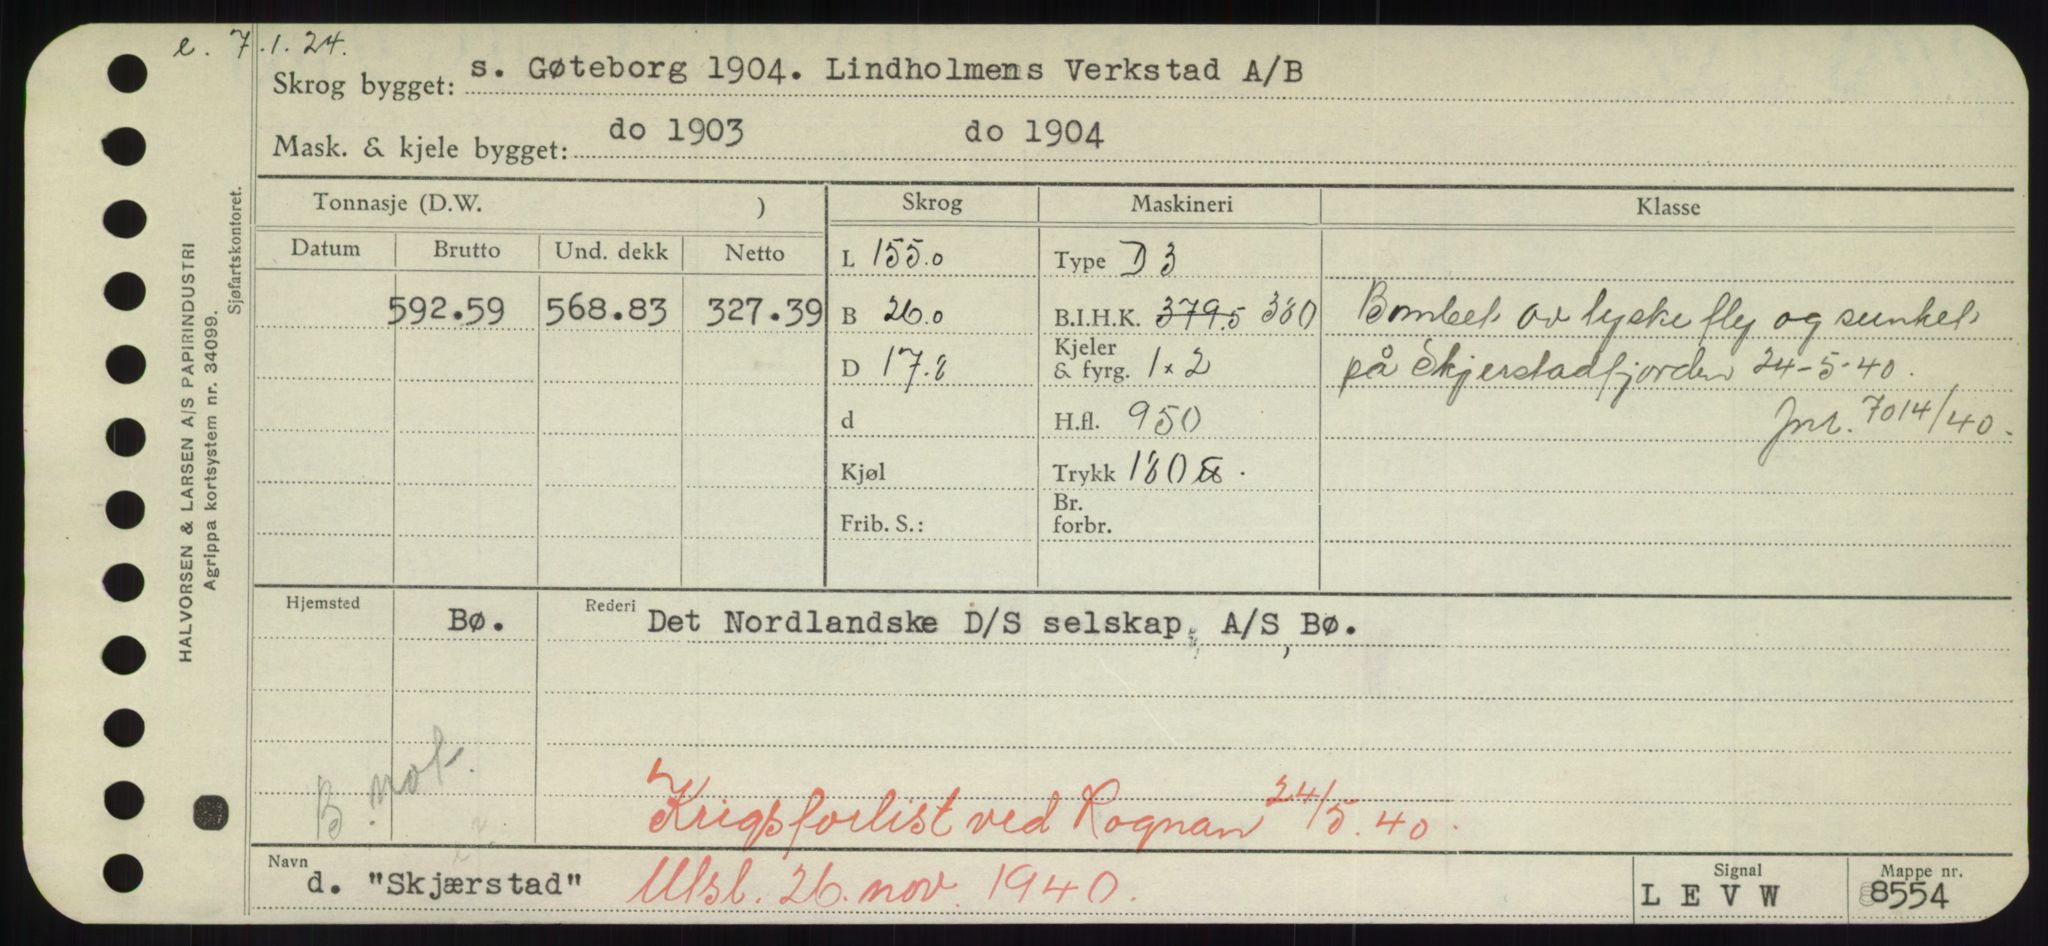 e. 7.1.24.
Skrog bygget: s. Gøteborg 1904. Lindholmens Verkstad A/B
Mask. & kjele bygget: do 1903 do 1904
Tonnasje (D.W. ) Skrog Maskineri Klasse
Datum Brutto Und. dekk Netto L 155.0 Type D 3
592.59 568.83 327.39 B 26.0 B.I.H.K. 379.5 380 Bombet av tyske fly og sunket
D 17.8 Kjeler & fyrg. 1x2 på Skjerstadfjorden 24-5-40.
d H.fl. 950 Jnr. 7014/40.
Kjøl Trykk 180 lbs.
Frib. S.: Br. forbr.
Hjemsted Bø. Rederi Det Nordlandske D/S selskap, A/S, Bø.
B. not.
Krigsforlist ved Rognan 24/5.40.
Navn d. "Skjærstad" Utsl. 26. nov. 1940. Signal L E V W Mappe nr. 8554
HALVORSEN & LARSEN A/S PAPIRINDUSTRI
Agrippa kortsystem nr. 34099.
Sjøfartskontoret.